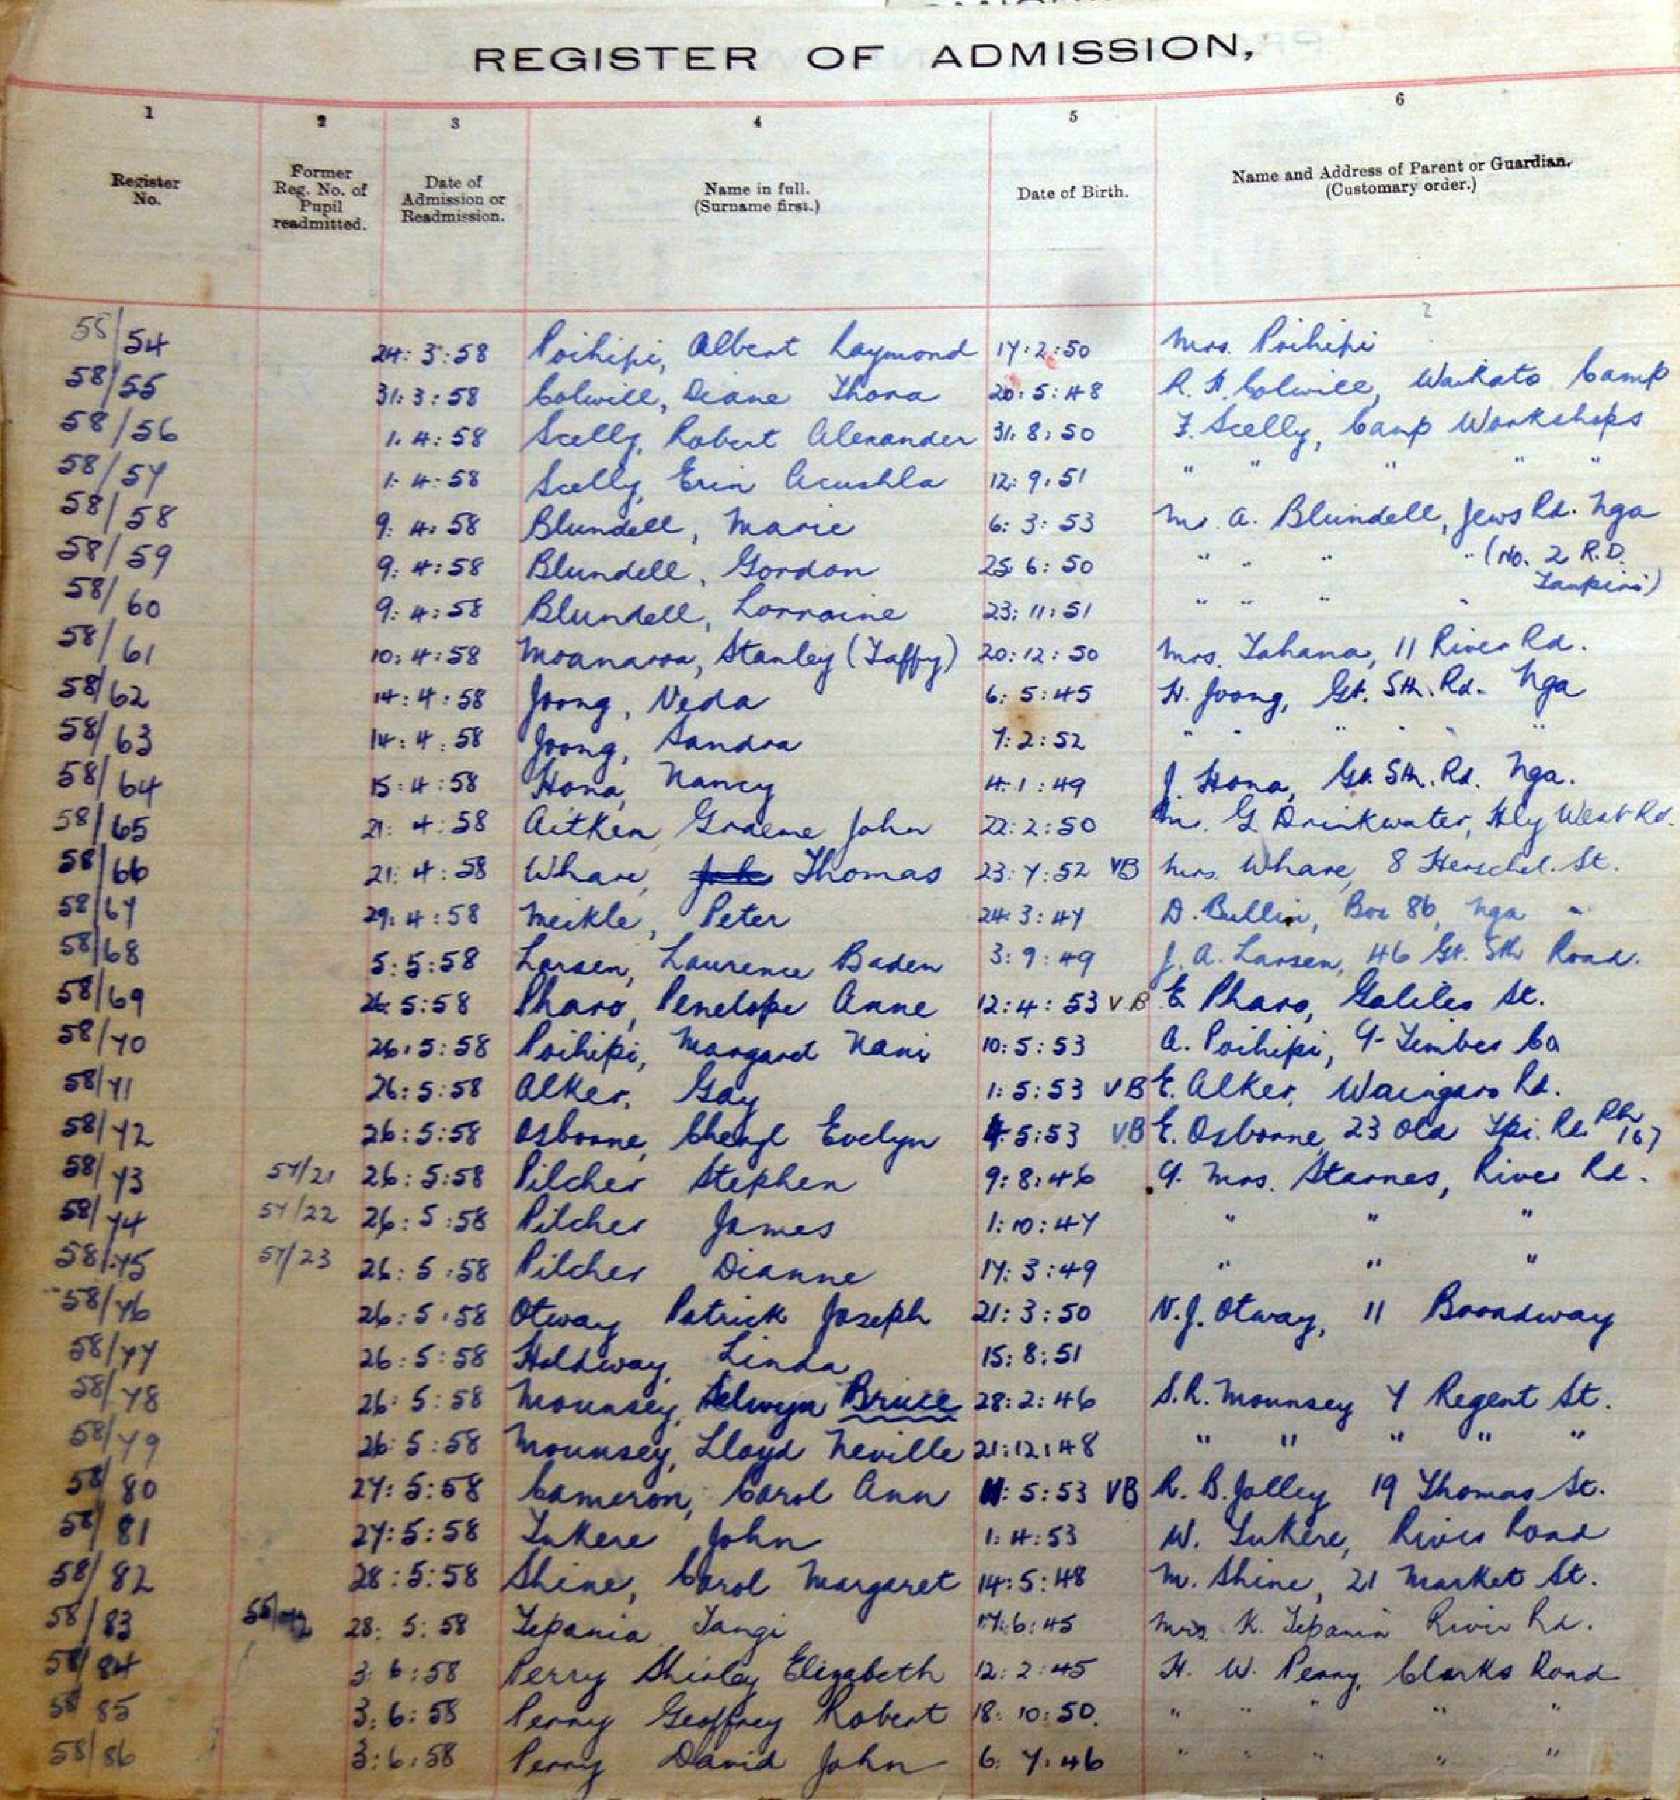 REGISTER OF ADMISSION,
1 2 3 4 5 6
Register No. Former Reg. No. of Pupil readmitted. Date of Admission or Readmission. Name in full. (Surname first.) Date of Birth. Name and Address of Parent or Guardian. (Customary order.)
?
58/54 24:3:58 Poihipi, Albert Raymond 17:2:50 Mrs. Poihipi
58/55 31:3:58 Colwill, Diane Thora 20:5:48 R. H. Colwill, Waikato Camp
58/56 1:4:58 Scelly, Robert Alexander 31:8:50 F. Scelly, Camp Workshops
58/57 1:4:58 Scelly, Erin Acushla 12:9:51 " " " " "
58/58 9:4:58 Blundell, Marie 6:3:53 Mr. A. Blundell, Jews Rd. Nga
58/59 9:4:58 Blundell, Gordon 25:6:50 " " " " (No. 2 R.D.
Taupiri)
58/60 9:4:58 Blundell, Lorraine 23:11:51 " " " "
58/61 10:4:58 Moanaroa, Stanley (Taffy) 20:12:50 Mrs. Tahana, 11 River Rd.
58/62 14:4:58 Joong, Neda 6:5:45 H. Joong, Gt. Sth. Rd. Nga
58/63 14:4:58 Joong, Sandra 7:2:52 " " " " " "
58/64 15:4:58 Hona, Nancy 4:1:49 J. Hona, Gt. Sth. Rd. Nga.
58/65 21:4:58 Aitken, Graeme John 22:2:50 Mr. G. Drinkwater, Hly West Rd.
58/66 21:4:58 Whare, Thomas 23:7:52 VB Mrs. Whare, 8 Herschel St.
58/67 29:4:58 Meikle, Peter 24:3:47 D. Bullin, Box 86, Nga "
58/68 5:5:58 Larsen, Laurence Baden 3:9:49 J. A. Larsen, 46 Gt. Sth Road.
58/69 26:5:58 Pharo, Penelope Anne 12:4:53 VB E. Pharo, Galileo St.
58/70 26:5:58 Poihipi, Margaret Nani 10:5:53 A. Poihipi, 9- Timber Co
58/71 26:5:58 Alker, Gay 1:5:53 VB E. Alker, Waingaro Rd.
58/72 26:5:58 Osborne, Cheryl Evelyn 4:5:53 VB E. Osborne, 23 Old Tpi. Rd Ph 167
58/73 57/21 26:5:58 Pilcher Stephen 9:8:46 G. Mrs. Starnes, River Rd.
58/74 57/22 26:5:58 Pilcher James 1:10:47 " " "
58/75 57/23 26:5:58 Pilcher Dianne 17:3:49 " " "
58/76 26:5:58 Otway Patrick Joseph 21:3:50 N.J. Otway, 11 Broadway
58/77 26:5:58 Holdway, Linda 15:8:51
58/78 26:5:58 Mounsey, Selwyn Bruce 28:2:46 S.R. Mounsey 7 Regent St.
58/79 26:5:58 Mounsey, Lloyd Neville 21:12:48 " " " " "
58/80 27:5:58 Cameron, Carol Ann 11:5:53 VB R. B. Jolley 19 Thomas St.
58/81 27:5:58 Tukere John 1:4:53 W. Tukere, River Road
58/82 28:5:58 Shine, Carol Margaret 14:5:48 M. Shine, 21 Market St.
58/83 28:5:58 Tepania Tangi 17:6:45 Mrs. K. Tepania River Rd.
58/84 3:6:58 Perry Shirley Elizabeth 12:2:45 H. W. Perry, Clarks Road
58/85 3:6:58 Perry Geoffrey Robert 18:10:50 " " " " "
58/86 3:6:58 Perry David John 6:7:46 " " " " "